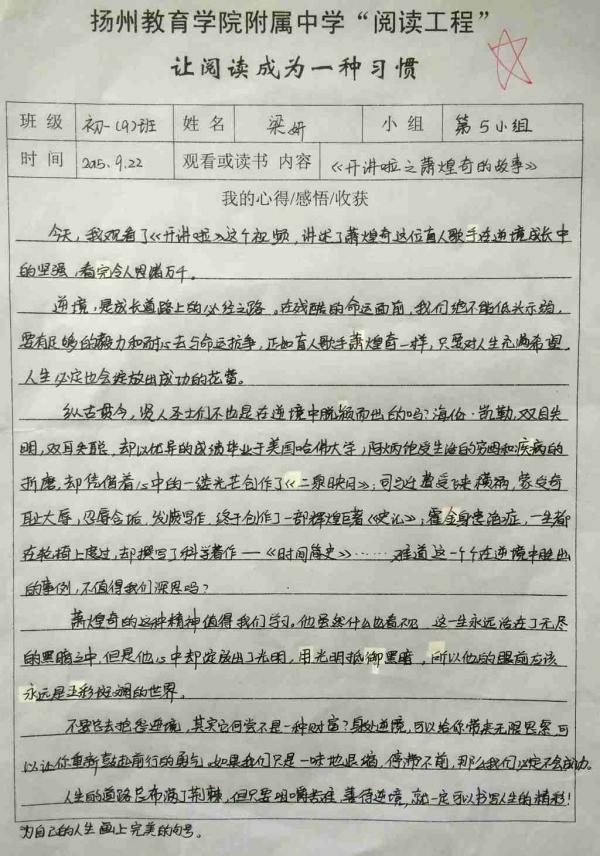 扬州教育学院附属中学“阅读工程”
让阅读成为一种习惯
班 级 初一(9)班 姓 名 梁妍 小 组 第5小组
时 间 2015.9.22 观看或读书 内容 《开讲啦之萧煌奇的故事》
我的心得/感悟/收获
今天,我观看了《开讲啦》这个视频,讲述了萧煌奇这位盲人歌手在逆境成长中
的坚强,看完令人思绪万千。
逆境,是成长道路上的必经之路。在残酷的命运面前,我们绝不能低头示弱,
要有足够的毅力和耐心去与命运抗争,正如盲人歌手萧煌奇一样,只要对人生充满希望,
人生必定也会绽放出成功的花蕾。
纵古贯今,贤人圣士们不也是在逆境中脱颖而出的吗?海伦·凯勒,双目失
明,双耳失聪,却以优异的成绩毕业于美国哈佛大学;阿炳饱受生活的穷困和疾病的
折磨,却凭借着心中的一缕光芒创作了《二泉映月》;司马迁遭受飞来横祸,蒙受奇
耻大辱,忍辱含垢,发愤写作,终于创作了一部辉煌巨著《史记》;霍金身患绝症,一生都
在轮椅上度过,却撰写了科学著作—《时间简史》……,难道这一个个在逆境中脱出
的事例,不值得我们深思吗?
萧煌奇的这种精神值得我们学习。他虽然什么也看不见,这一生永远活在了无尽
的黑暗之中,但是他心中却绽放出了光明,用光明抵御黑暗,所以他的眼前应该
永远是五彩斑斓的世界。
不要去抱怨逆境,其实它何尝不是一种财富?身处逆境,可以给你带来无限思索,可
以让你重新鼓起前行的勇气。如果我们只是一味地退缩,停滞不前,那么我们必定不会成功。
人生的道路尽布满了荆棘,但只要咀嚼苦难,善待逆境,就一定可以书写人生的精彩!
为自己的人生画上完美的句号。